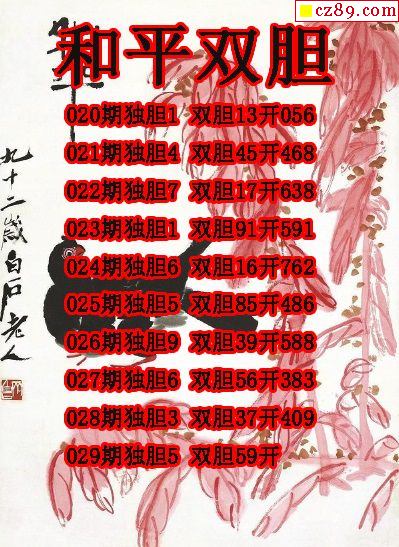 cz89.com
和平双胆
020期独胆1 双胆13开056
021期独胆4 双胆45开468
022期独胆7 双胆17开638
023期独胆1 双胆91开591
024期独胆6 双胆16开762
025期独胆5 双胆85开486
026期独胆9 双胆39开588
027期独胆6 双胆56开383
028期独胆3 双胆37开409
029期独胆5 双胆59开
九十二歲白石老人